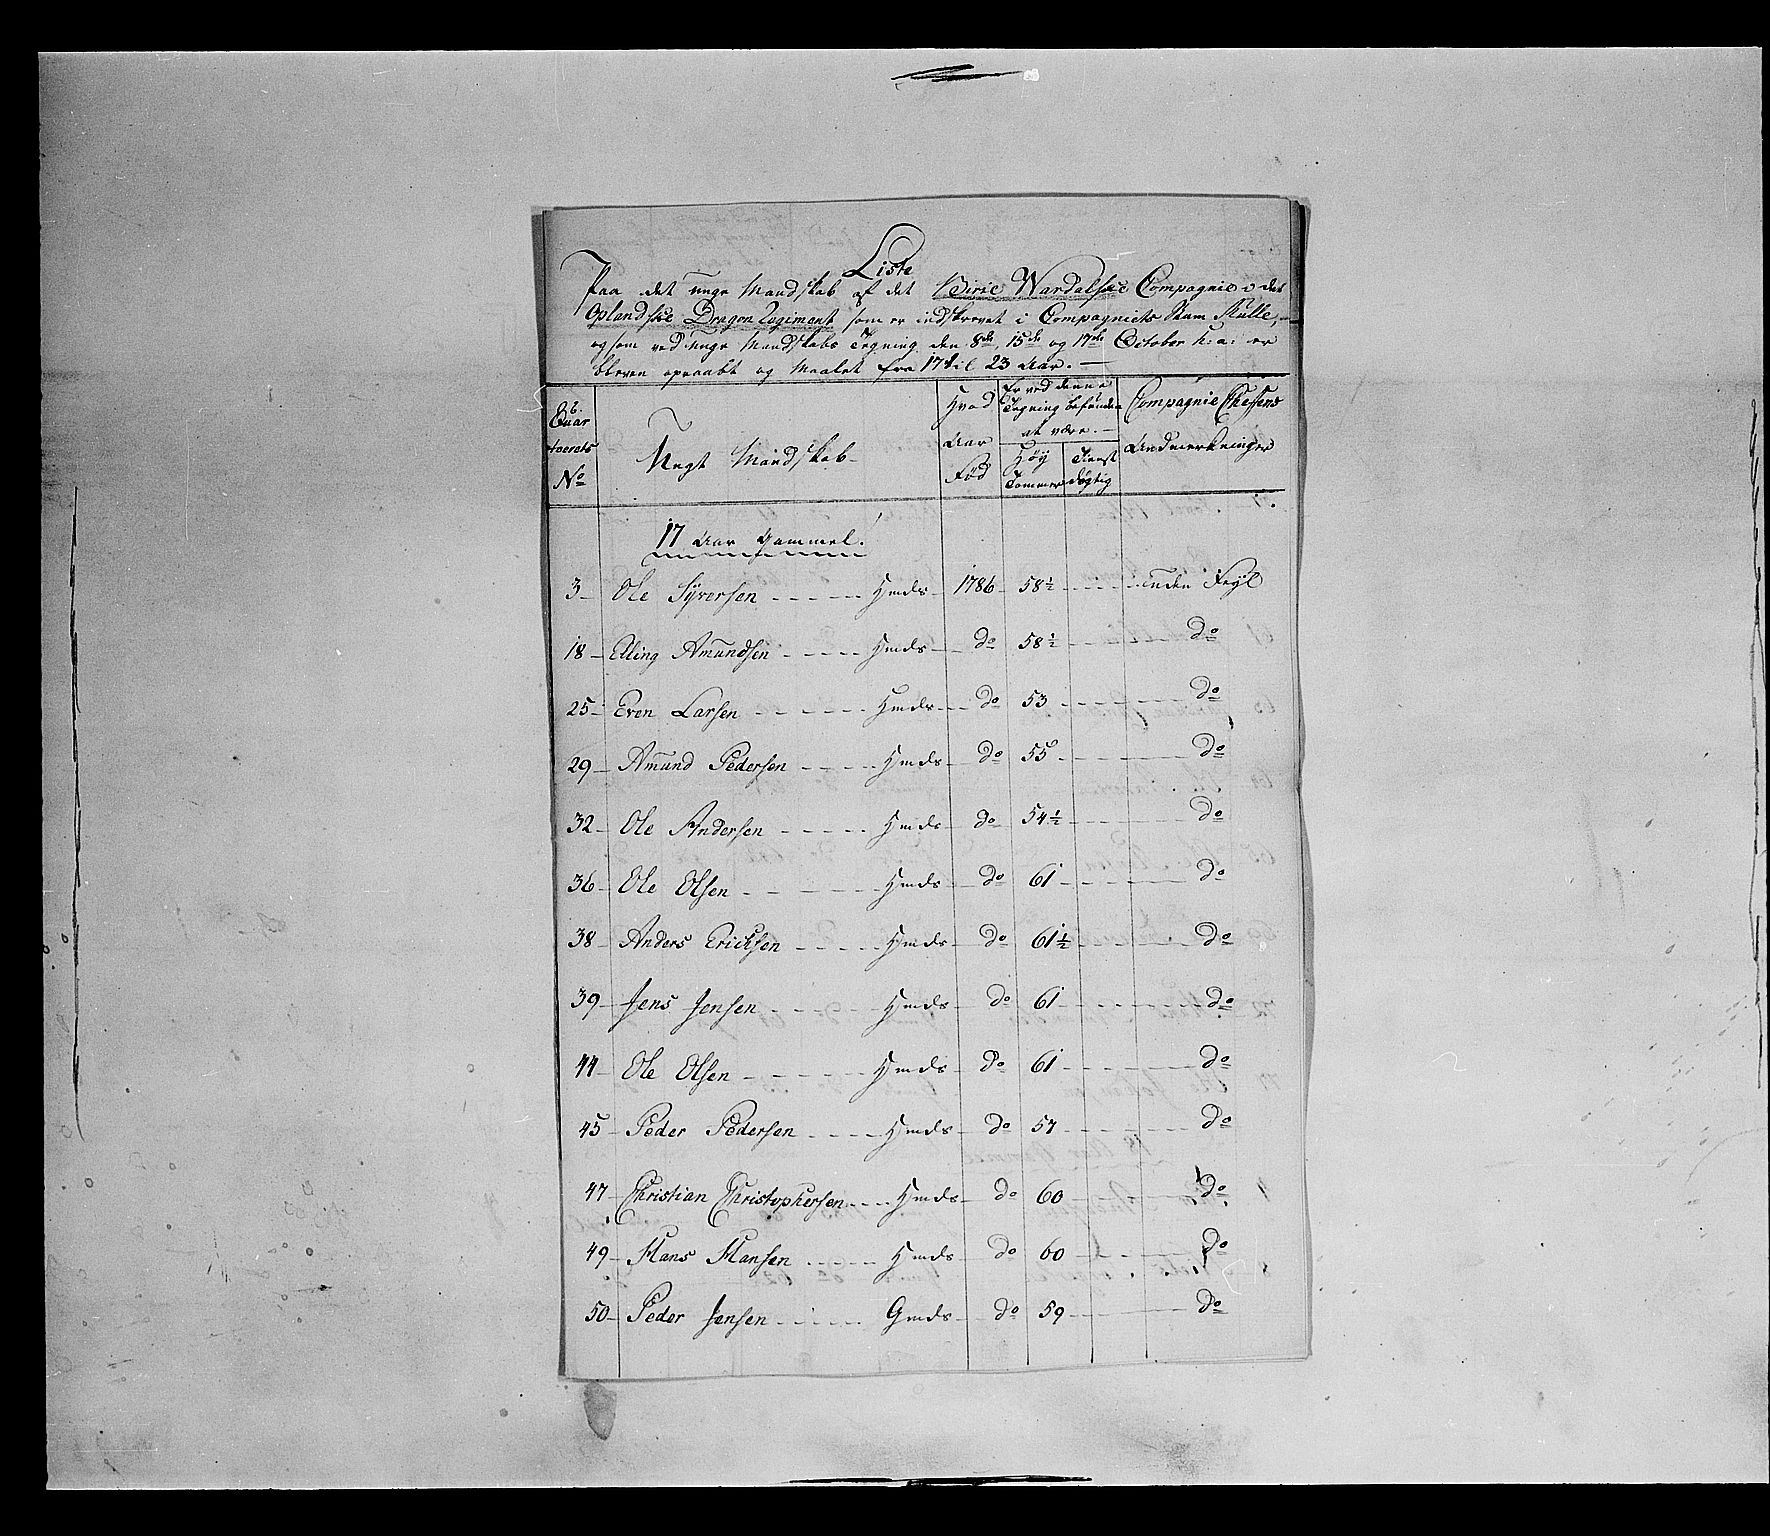 Liste
Paa det unge Mandskab af det Birie Wardalske Compagnie i det
Oplandske Dragon Regiment som er indskrevet i Compagniets Stam Rulle,
og som ved unge Mandskabs Tegning den 8de, 15de og 17de October h: a: er
bleven opraabt og Maalet fra 17 til 23 Aar. —
Quar
teerets
No
Ungt Mandskab
Hvad
Aar
Fød
Er ved denne
Tegning befunden
at være. —
Høy
Tommer
Tienst
døgtig
Compagnie Cheffens
Anmerkninger
17 Aar Gammel.
3 Ole Syversen Hmds 1786 58½ uden Feyl
18 Elling Amundsen Hmds do 58½ do
25 Even Larsen Hmds do 53 do
29 Amund Pedersen Hmds do 55 do
32 Ole Andersen Hmds do 54½ do
36 Ole Olsen Hmds do 61 do
38 Anders Ericksen Hmds do 61½ do
39 Jens Jensen Hmds do 61 do
44 Ole Olsen Hmds do 61 do
45 Peder Pedersen Hmds do 57 do
47 Christian Christophersen Hmds do 60 do
49 Hans Hansen Hmds do 60 do
50 Peder Jensen Gmds do 59 do